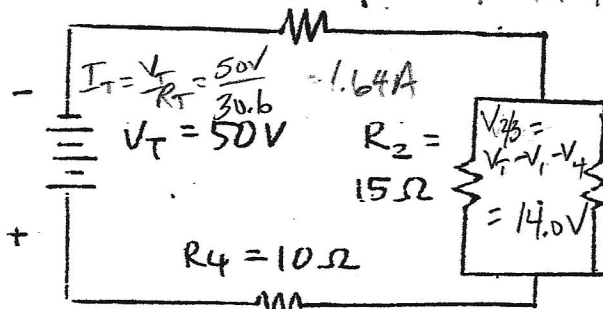 I_T = V_T/R_T = 50V/30.6 = 1.64A
-
V_T = 50V
R_2 =
15Ω
V_2/3 =
V_T - V_1 - V_4
= 14.0V
+
R4 = 10Ω